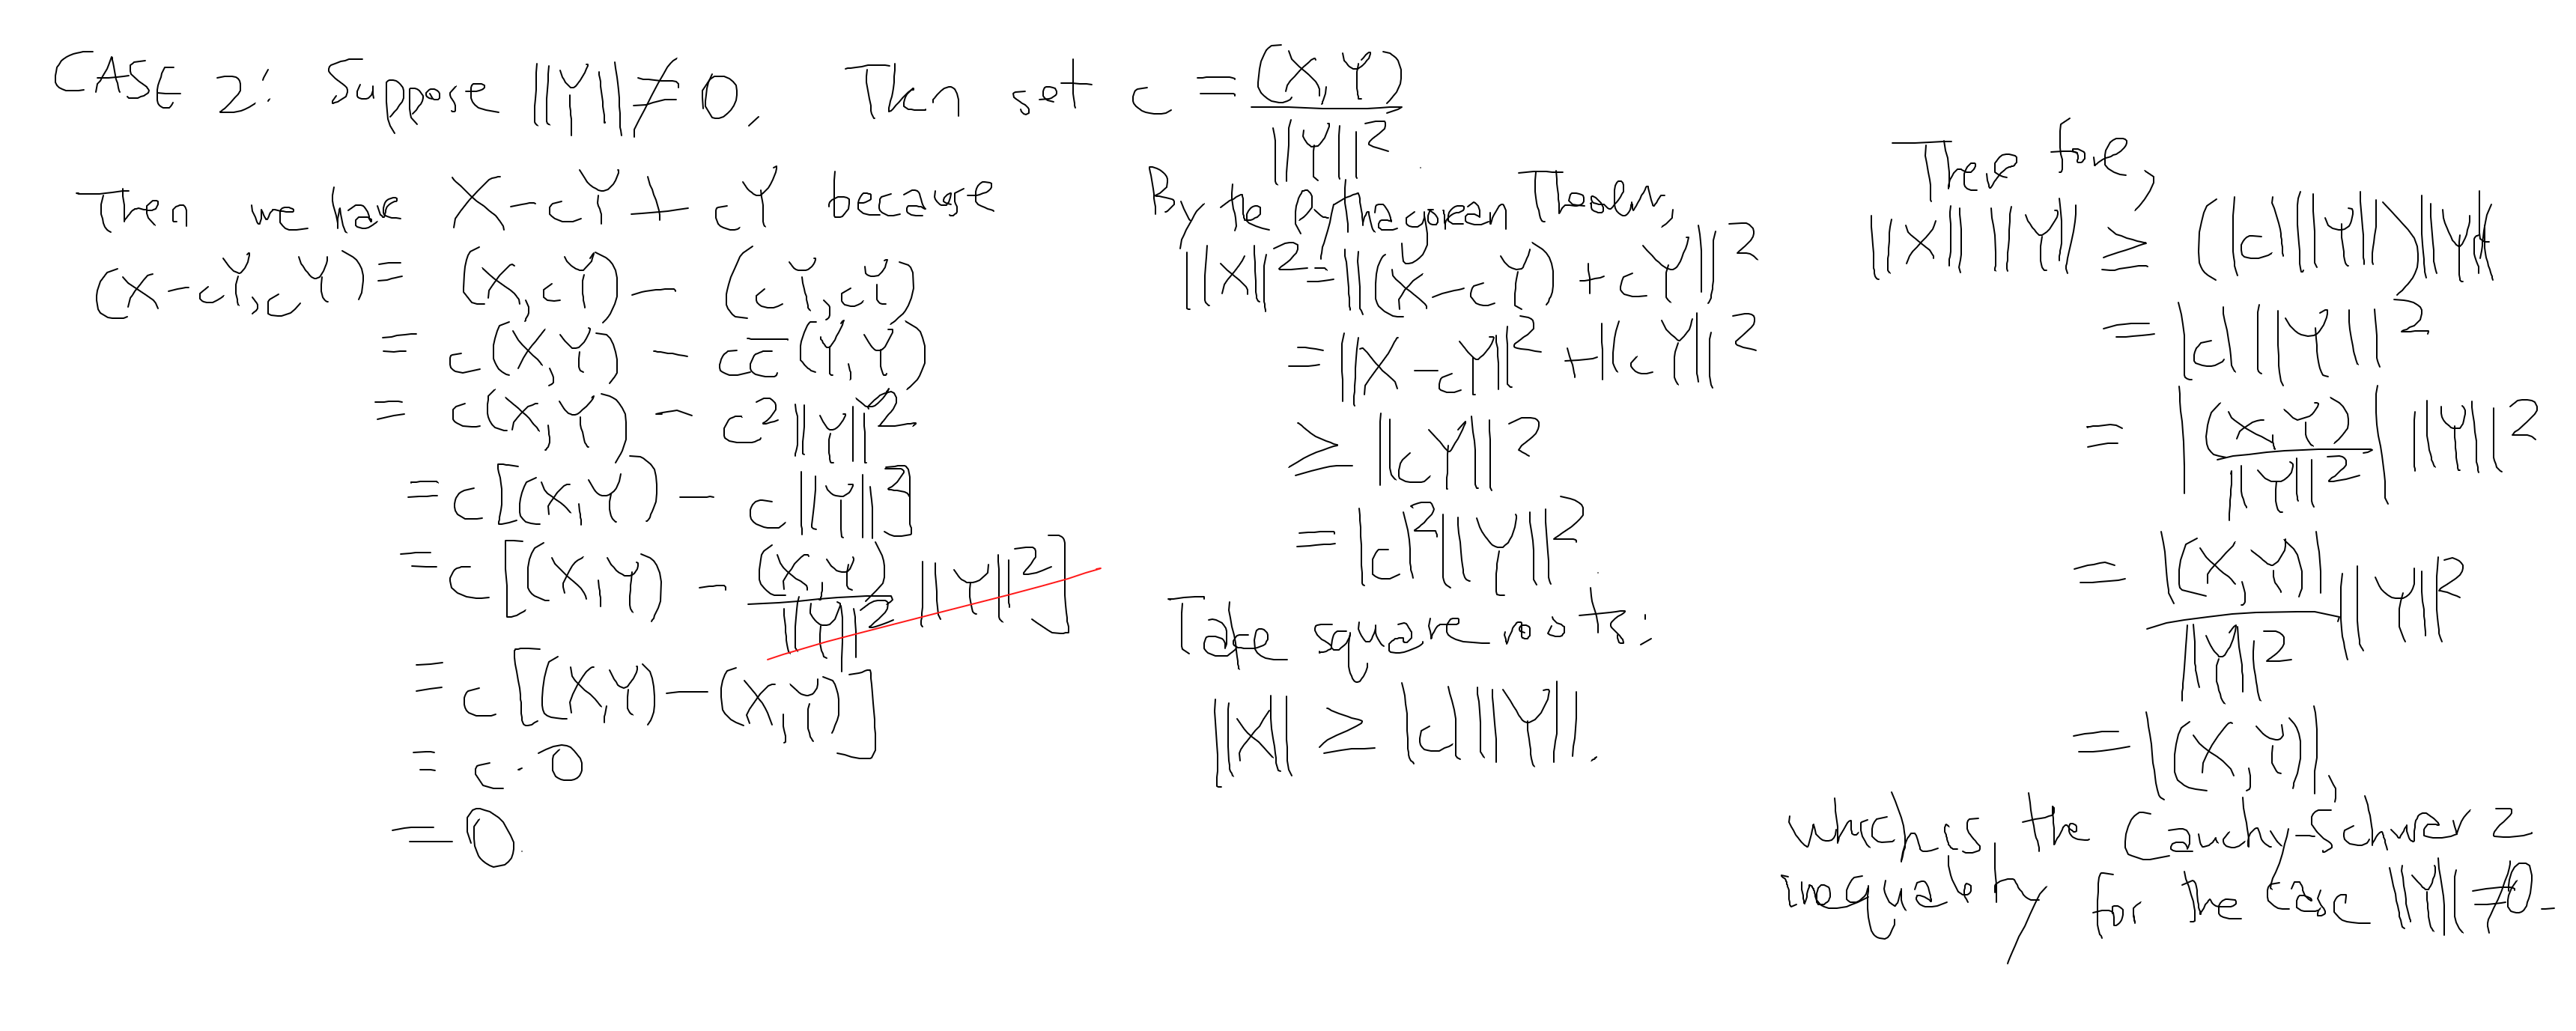 CASE 2: Suppose ||Y|| ≠ 0. Then set c = (X,Y) / ||Y||²
Then we have X-cY ⊥ cY because
(X-cY, cY) = (X,cY) - (cY,cY)
= c(X,Y) - cc̅(Y,Y)
= c(X,Y) - c²||Y||²
= c[(X,Y) - c||Y||²]
= c[(X,Y) - (X,Y)/||Y||² ||Y||²]
= c[(X,Y) - (X,Y)]
= c·0
= 0
By the Pythagorean Theorem,
||X||² = ||(X-cY) + cY||²
= ||X-cY||² + ||cY||²
≥ ||cY||²
= |c|²||Y||²
Take square roots:
||X|| ≥ |c| ||Y||.
Therefore,
||X|| ||Y|| ≥ (|c| ||Y||)||Y||
= |c| ||Y||²
= |(X,Y)/||Y||²| ||Y||²
= |(X,Y)|/||Y||² ||Y||²
= |(X,Y)|,
which is the Cauchy-Schwarz
inequality for the case ||Y|| ≠ 0.